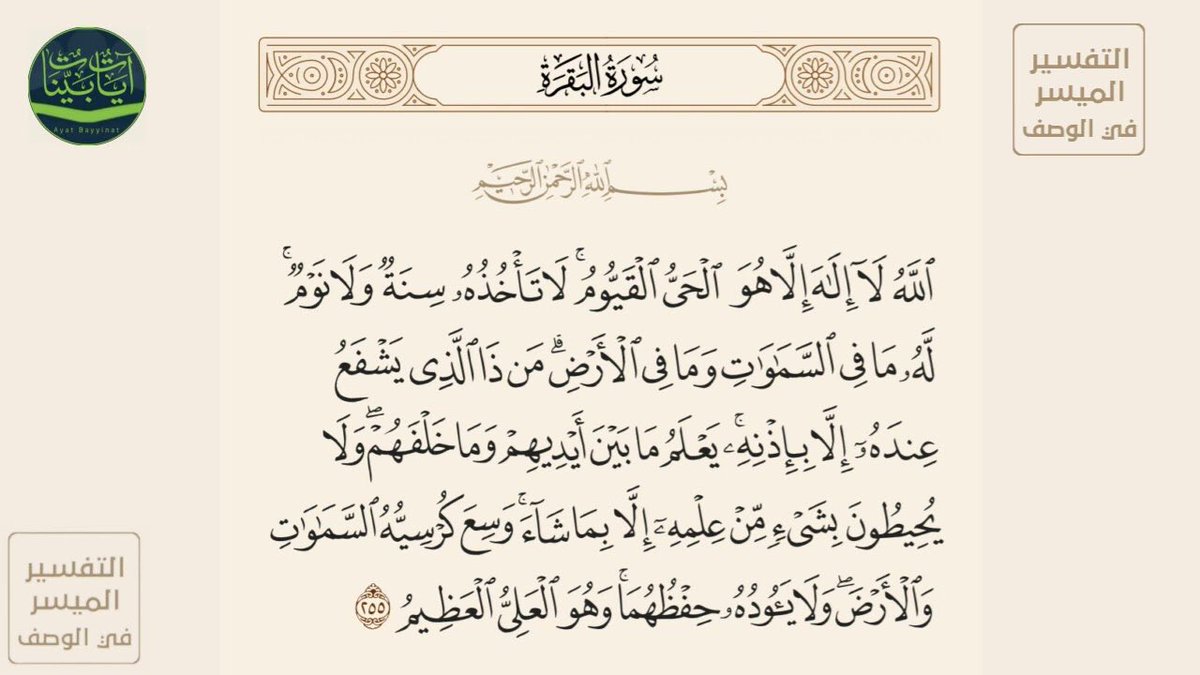 آيات بينات
Ayat Bayyinat
سُورَةُ البَقَرَةِ
التفسير
الميسر
في الوصف
بِسْمِ ٱللَّهِ ٱلرَّحْمَٰنِ ٱلرَّحِيمِ
ٱللَّهُ لَآ إِلَٰهَ إِلَّا هُوَ ٱلْحَىُّ ٱلْقَيُّومُ ۚ لَا تَأْخُذُهُۥ سِنَةٌ وَلَا نَوْمٌ ۚ
لَّهُۥ مَا فِى ٱلسَّمَٰوَٰتِ وَمَا فِى ٱلْأَرْضِ ۗ مَن ذَا ٱلَّذِى يَشْفَعُ
عِندَهُۥٓ إِلَّا بِإِذْنِهِۦ ۚ يَعْلَمُ مَا بَيْنَ أَيْدِيهِمْ وَمَا خَلْفَهُمْ ۖ وَلَا
يُحِيطُونَ بِشَىْءٍ مِّنْ عِلْمِهِۦٓ إِلَّا بِمَا شَآءَ ۚ وَسِعَ كُرْسِيُّهُ ٱلسَّمَٰوَٰتِ
وَٱلْأَرْضَ ۖ وَلَا يَـُٔودُهُۥ حِفْظُهُمَا ۚ وَهُوَ ٱلْعَلِىُّ ٱلْعَظِيمُ ٢٥٥
التفسير
الميسر
في الوصف